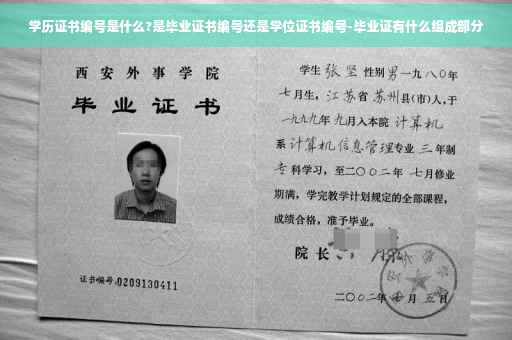 学历证书编号是什么?是毕业证书编号还是学位证书编号-毕业证有什么组成部分
西安外事学院
毕业证书
证书编号:0209130411
学生 张坚 性别男 一九八〇年
七月生, 江苏省 苏州县(市)人, 于
一九九九年 九月入本院 计算机
系 计算机信息管理专业 三 年制
专 科学习, 至二〇〇二年 七月修业
期满, 学完教学计划规定的全部课程,
成绩合格, 准予毕业。
院长
二〇〇二年 月 五日